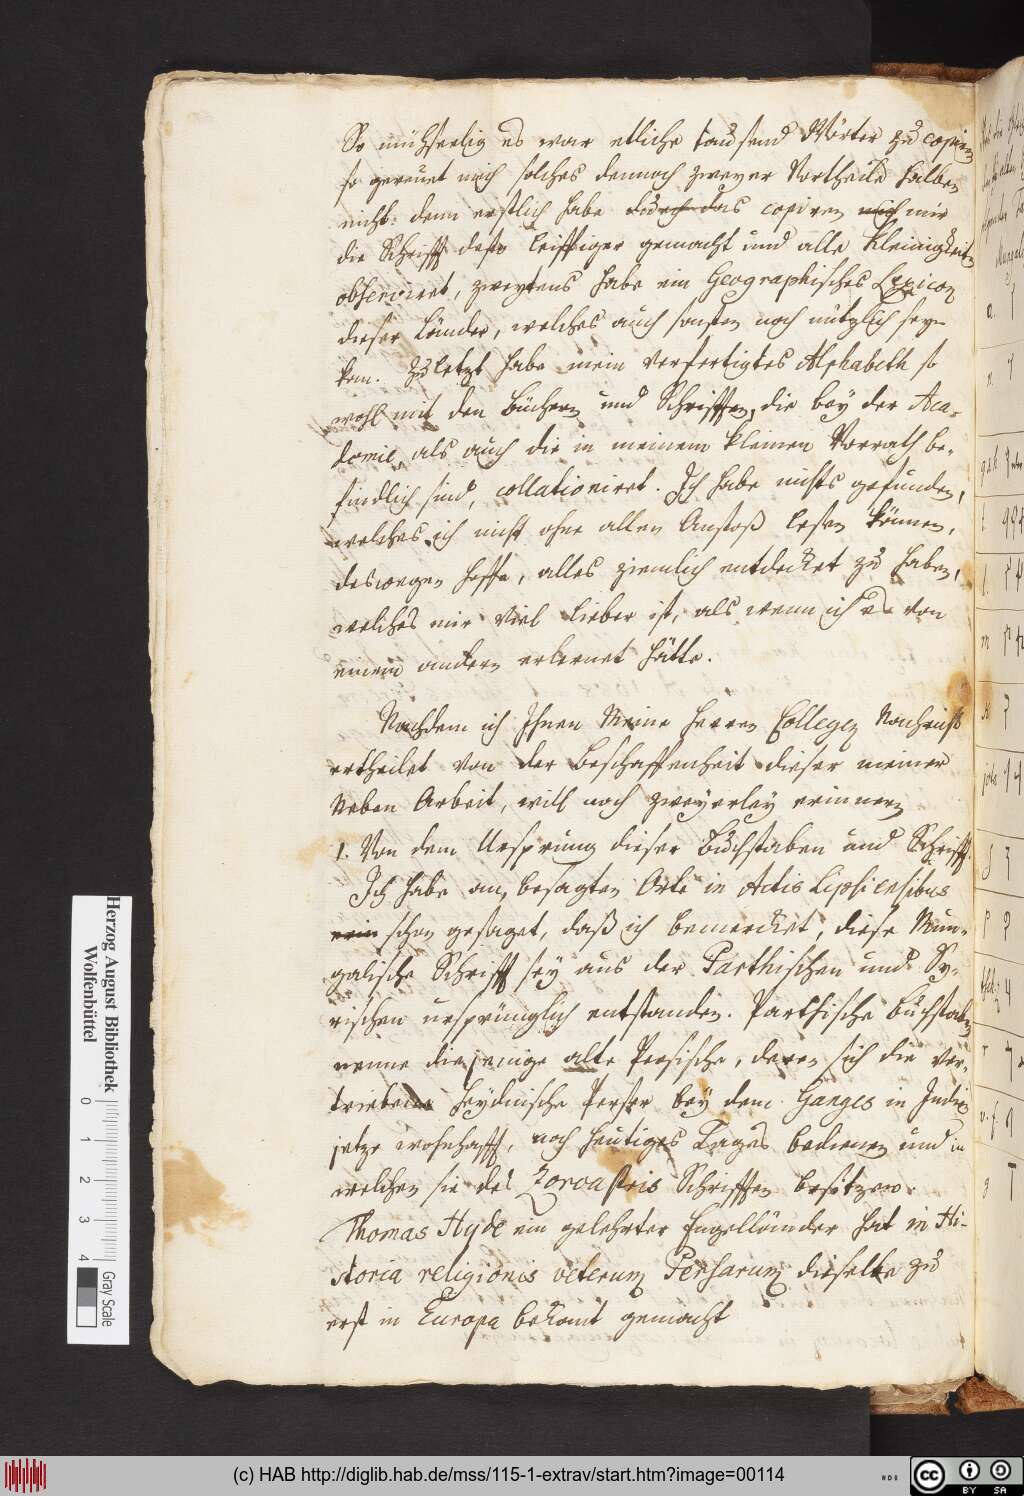 So mühseelig es war etliche tausend Wörter zu copiren
so gereuet mich solches dennoch zweyer Vortheile halben
nicht: denn erstlich habe durch das copiren mich mir
die Schrifft desto leifftiger gemacht und alle Kleinigkeiten
observiret, zweytens habe ein Geographisches Lexicon
dieser Länder, welches auch sonsten noch nützlich seyn
kan. Zuletzt habe mein verfertigtes Alphabeth so
wohl mit den Büchern und Schrifften, die bey der Aca-
demie, als auch die in meinem kleinen Vorrath be-
findlich sind, collationiret. Ich habe nichts gefunden,
welches ich nicht ohne allen Anstoß lesen können,
deswegen hoffe, alles ziemlich entdecket zu haben,
welches mir viel lieber ist, als wenn ich es von
einem andern erlernet hätte.
Nachdem ich Ihnen Meine Herren Collegen Nachricht
ertheilet von der Beschaffenheit dieser meiner
Neben Arbeit, will noch zweyerley erinnern
1. Von dem Ursprung dieser Buchstaben und Schrifft.
Ich habe am besagten Orte in Actis Lipsiensibus
schon gesaget, daß ich bemercket, diese Mun-
galische Schrifft sey aus der Parthischen und Sy-
rischen ursprünglich entstanden. Parthische Buchstaben
nenne diejenige alte Persische, deren sich die ver-
triebene heydnische Perser bey dem Ganges in Indien
jetzo wohnhafft, noch heutiges Tages bedienen und in
welchen sie des Zoroastris Schrifften besitzen.
Thomas Hyde ein gelehrter Engelländer hat in Hi-
storia religionis veterum Persarum dieselbe zu
erst in Europa bekant gemacht
Herzog August Bibliothek
Wolfenbüttel
0 1 2 3 4
Gray Scale
(c) HAB http://diglib.hab.de/mss/115-1-extrav/start.htm?image=00114
cc BY SA